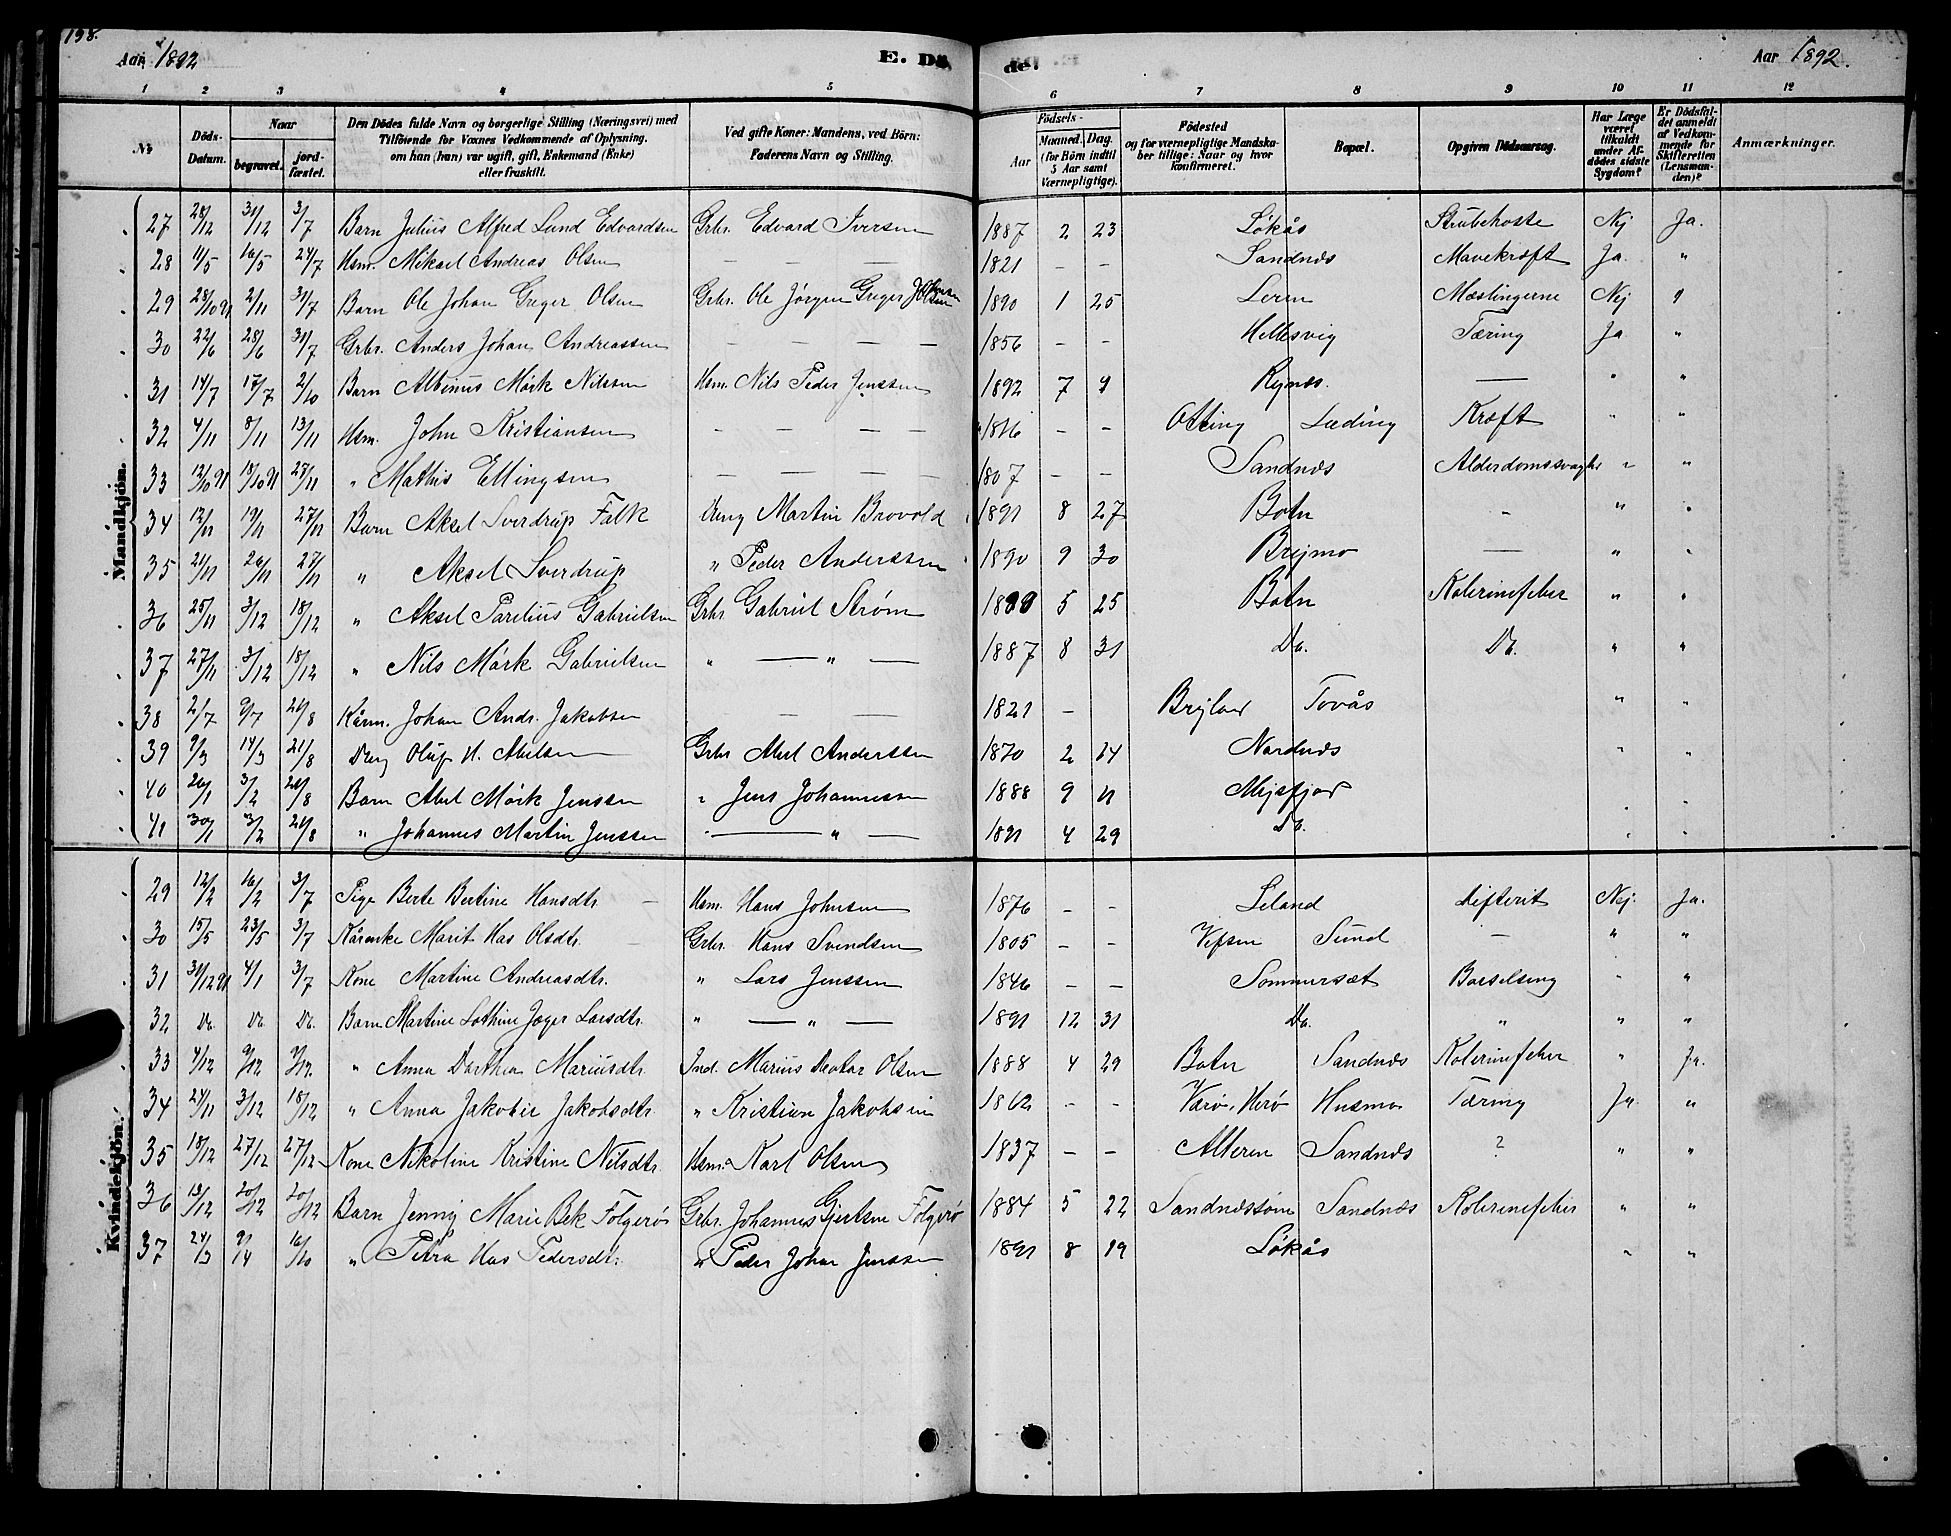 198.
Aar 1892
E. Dö
de.
Aar 1892.
1 2 3 4 5 6 7 8 9 10 11 12
No
Döds-Datum.
Naar
begravet.
jordfæstet.
Den Dödes fulde Navn og borgerlige Stilling (Næringsvei) med
Tilföiende for Voxnes Vedkommende af Oplysning,
om han (hun) var ugift, gift, Enkemand (Enke)
eller fraskilt.
Ved gifte Koner: Mandens, ved Börn:
Faderens Navn og Stilling.
Födsels-
Aar
Maaned. Dag.
(for Börn indtil
5 Aar samt
Værnepligtige).
Födested
og for værnepligtige Mandskaber tillige: Naar og hvor
konfirmeret.
Bopæl.
Opgiven Dödsaarsag.
Har Læge
været
tilkaldt
under Afdödes sidste
Sygdom?
Er Dödsfaldet anmeldt
af Vedkommende for
Skifteretten
(Lensmanden)?
Anmærkninger.
Mandkjön.
27 28/12 31/12 3/7 Barn Julius Alfred Lund Edvardsen Grbr. Edvard Iversen 1887 2 23 Løkås Strubehoste Nej Ja.
28 11/5 16/5 24/7 Hsm. Mikael Andreas Olsen — — — 1821 — — Sandnæs Mavekræft Ja. "
29 28/10 91 2/11 31/7 Barn Ole Johan Greger Olsen Grbr. Ole Jørgen Greger 1890 1 25 Leren Mæslingerne Nej "
30 22/6 28/6 31/7 Grbr. Anders Johan Andreassen — — — 1856 — — Hellesvig Tæring Ja "
31 14/7 17/7 2/10 Barn Albinus Mørk Nilssen Hsm. Nils Peder Jenssen 1892 7 9 Rynæs. — " "
32 4/11 8/11 13/11 Hsm. John Kristiansen — — — 1816 — — Otting Læding Kræft " "
33 12/10 91 18/10 91 27/11 " Mathis Ellingsen — — — 1807 — — Sandnæs Alderdomssvaghe " "
34 12/11 19/11 27/11 Barn Aksel Sverdrup Falk Ung Martin Brovold 1891 8 27 Botn - " "
35 21/11 26/11 27/11 " Aksel Sverdrup " Peder Anderssen 1890 9 30 Brejmo — " "
36 25/11 3/12 18/12 " Aksel Parelius Gabrielsen Grbr. Gabriel Strøm 5 25 Botn Kolerinefeber " "
37 27/11 3/12 18/12 " Nils Mørk Gabrielsen " — " — 1887 8 31 Do. Do. " "
38 2/7 9/7 21/8 Kårm. Johan Andr. Jakobsen — — 1821 — Tovås " "
39 9/3 14/3 21/8 Ung Oluf H. Abelsen Grbr Abel Anderssen 1870 2 14 Nordnæs " "
40 26/1 3/2 21/8 Barn Abel Mørk Jenssen " Jens Johannessen 1888 9 11 Mejsfjor " "
41 30/1 3/2 21/8 " Johannes Martin Jenssen " — " — 1891 4 29 Do. " "
Kvindekjön.
29 12/2 16/2 3/7 Pige Berte Bertine Hansdtr. — Hsm. Hans Johnsen 1876 — — Leland Difterit Nej. Ja.
30 15/5 23/5 3/7 Kårenke Marit Has Olsdtr. — Grbr. Hans Svendsen 1805 — — Vefsen Sund — " "
31 31/12 91 4/1 3/7 Kone Martine Andreasdtr. " Lars Jenssen 1846 — — Sommersæt Barselseng " "
32 Do. Do. Do. Barn Martine Lothine Jæger Larsdtr. " — " — 1891 12 31 Do. " " "
33 4/12 9/12 9/12. " Anna Dorthea Mariusdtr. Ind. Marius Deotar Olsen 1888 4 29 Botn Sandnæs Kolerinefeber " Ja.
34 24/11 3/12 18/12 " Anna Jakobie Jakobsdtr. " Kristian Jakobsen 1862 — — Værø, Herø Husmo Tæring Ja "
35 18/12 27/12 27/12 Kone Nikoline Kristine Nilsdtr. Hsm. Karl Olsen 1837 — — Alteren Sandnæs ? " "
36 13/12 20/12 20/12 Barn Jenny Marie Bek Folgerø Grbr. Johannes Gjertsen Folgerø 1884 5 22 Sandnæs Kolerinefeber " "
37 24/3 16/10 " Petra Has Pedersdtr. " Peder Johan Jenssen 1891 8 19 Løkås " "